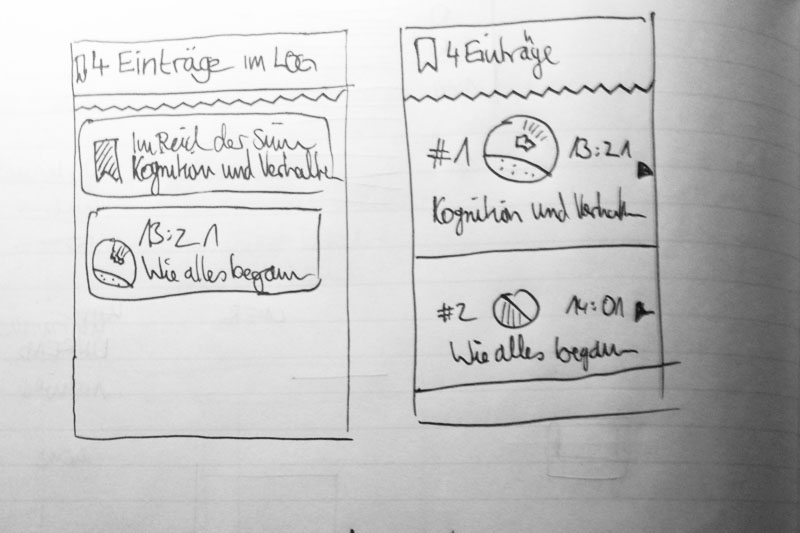 4 Einträge im LOG
Im Reich der Sinn
Kognition und Verhalten
13:21
Wie alles begann
4 Einträge
#1 13:21
Kognition und Verhalten
#2 14:01
Wie alles begann